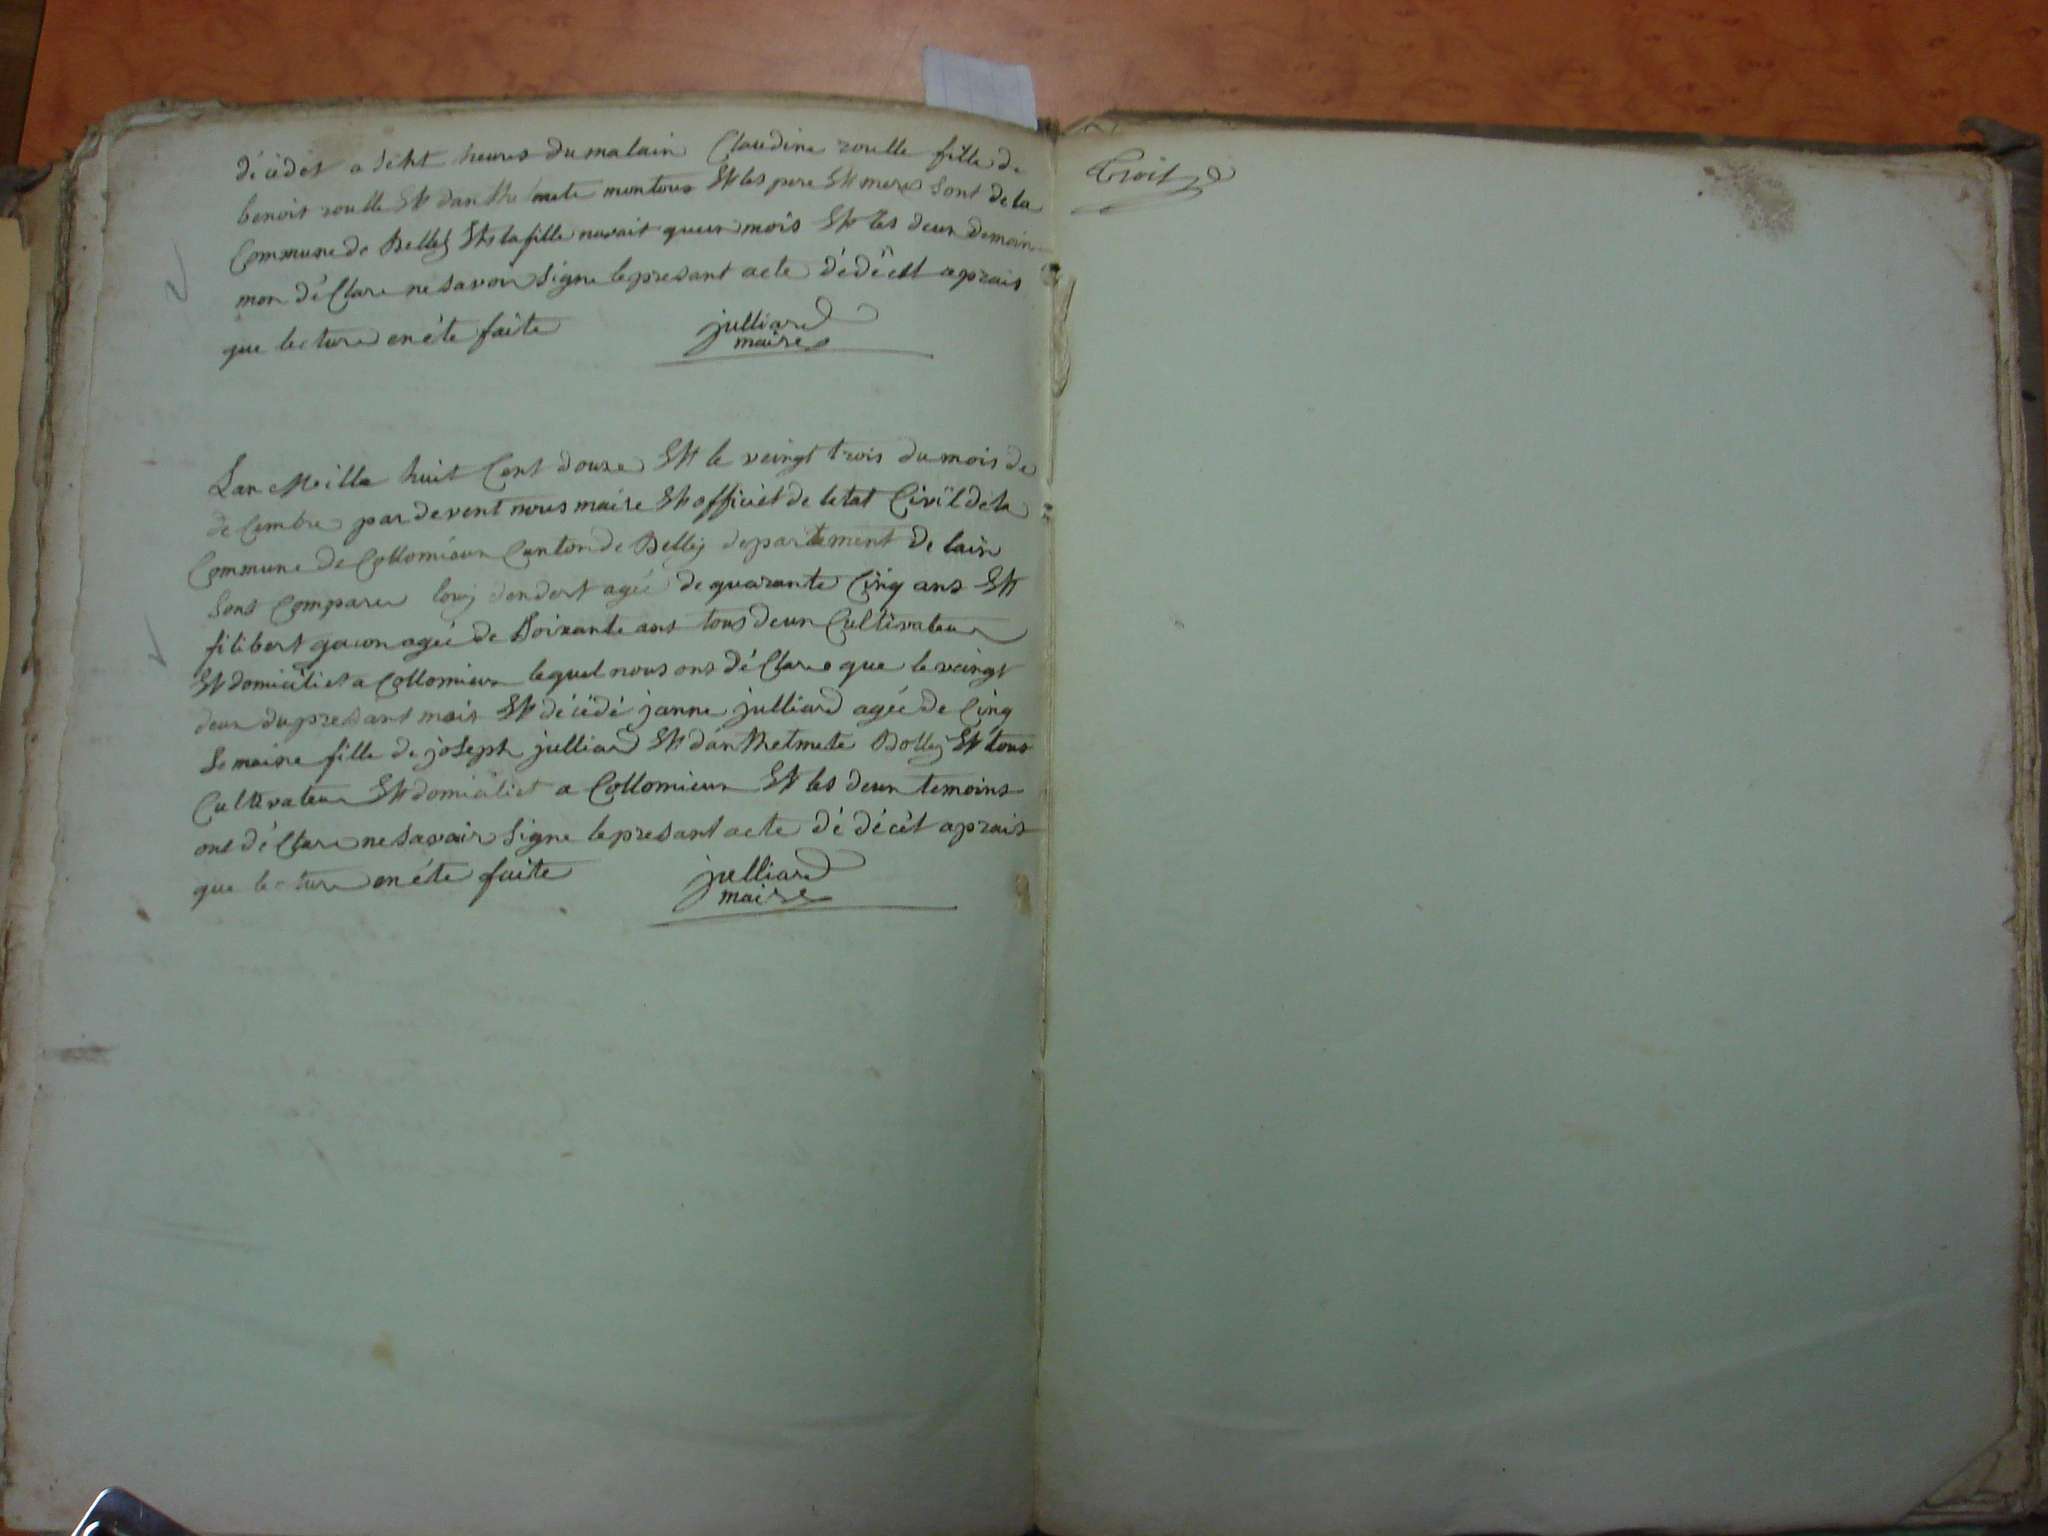 décédet a seht heures du matain Claudine roulle fille de
benoit roulle Ett danthelmete montoux Ett les pere Ett mere sont de la
Commune de Belley Ett la fille navait queun mois Ett les deux demoin
mon déClare ne savoir signe le presant acte dédécll aprais
que lecture en éte faite
julliard
maire
Lan Meille huit Cent douze Ett le veingt trois du mois de
deCembre par devent nous maire Ett officiet de letat Civïl de la
Commune de Collomieux Canton de Belley departement de lain
sons Comparer louj dendert agée de quarante Cinq ans Ett
filibert gacon agée de soixante ans tous deux Cultivateux
Ett domicïliet a Collomieux lequel nous ons déClare que le veingt
deux du presant mois Ett décëdé janne julliard agée de Cinq
semaine fille de joseph julliard Ett danthelmete Bolley Ett tous
Cultivateux Ett domicïliet a Collomieux Ett les deux temoins
ons déClare ne savair signe le presant acte dé décèt aprais
que lecture en éte faite
julliard
maire
Croit